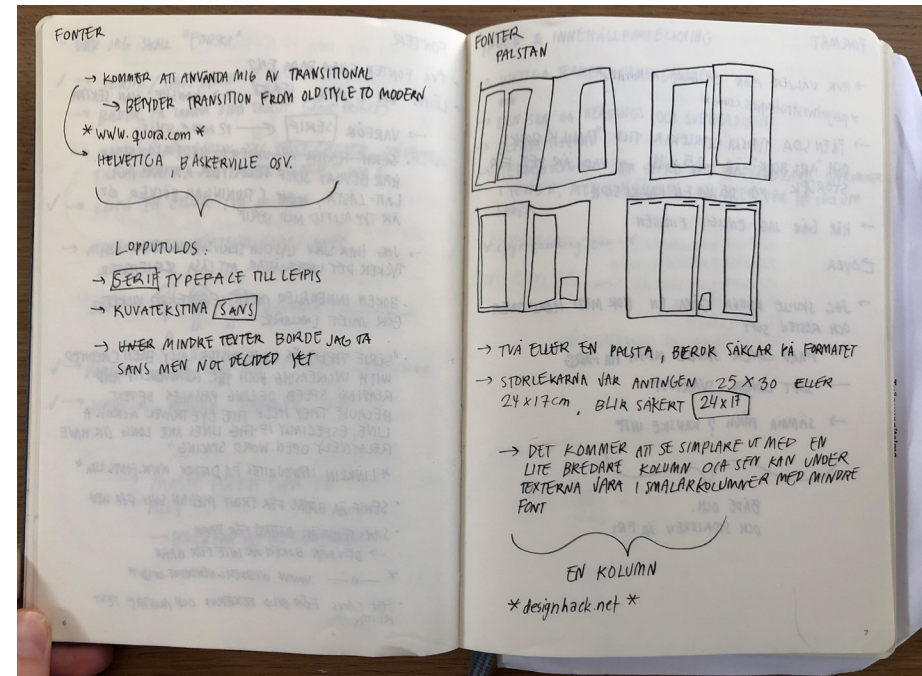 FONTER
→ KOMMER ATT ANVÄNDA MIG AV TRANSITIONAL
→ BETYDER TRANSITION FROM OLDSTYLE TO MODERN
* www.quora.com *
HELVETICA, BASKERVILLE OSV.
LOPPUTULOS.
→ SERIF TYPEFACE TILL LEIPIS
→ KUVATEKSTINA SANS
→ UNER MINDRE TEXTER BORDE JAG TA
SANS MEN NOT DECIDED YET
6
FONTER
PALSTAN
→ TVÅ ELLER EN PALSTA, BEROR SÄKLAR PÅ FORMATET
→ STORLEKARNA VAR ANTINGEN 25 X 30 ELLER
24 X 17 cm, BLIR SÄKERT 24 x 17
→ DET KOMMER ATT SE SIMPLARE UT MED EN
LITE BREDARE KOLUMN OCH SEN KAN UNDER
TEXTERNA VARA I SMALARKOLUMNER MED MINDRE
FONT
EN KOLUMN
* designhack.net *
7